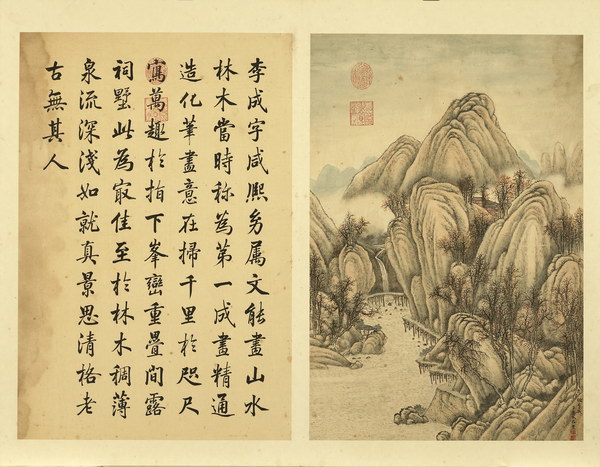 李成字咸熙多属文能畫山水
林木當時称為第一成畫精通
造化華盡意在掃千里於咫尺
寫萬趣於指下峯巒重疊間露
祠墅此為最佳至於林木稠薄
泉流深淺如就真景思清格老
古無其人